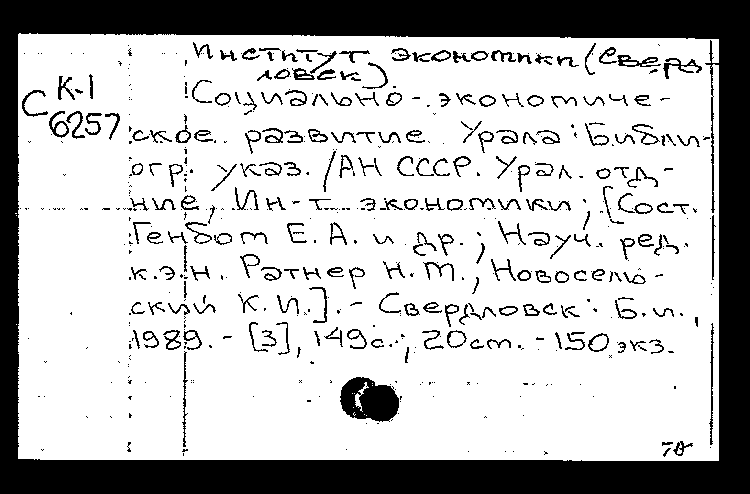 Институт экономики (Сверд-
ловск)
К-1
С 6257
Социально-экономиче-
ское развитие Урала: Библи-
огр. указ. / АН СССР. Урал. отд-
ние, Ин-т экономики; [Сост.
Генбот Е. А. и др.; Науч. ред.
к.э.н. Ратнер Н. М., Новосель-
ский К. И.]. - Свердловск: Б.и.,
1989. - [3], 149с.; 20см. - 150 экз.